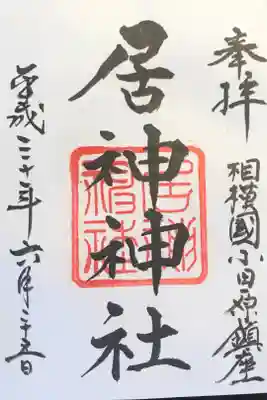 奉拝
相模國小田原鎮座
居神神社
平成三十年六月二十五日